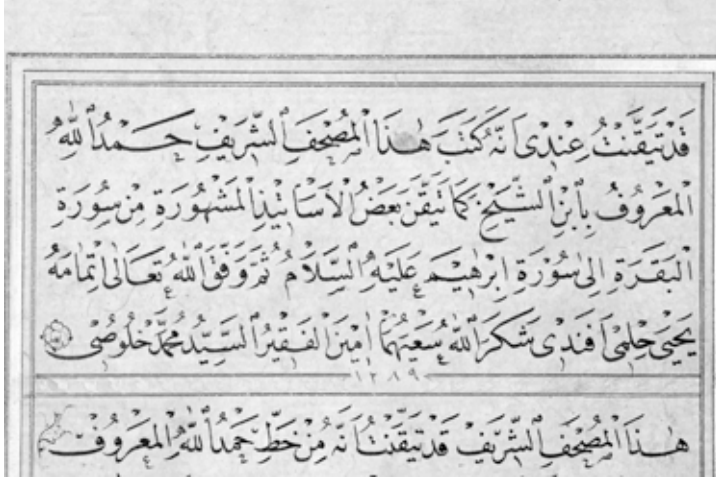 قَدْ تَيَقَّنْتُ عِنْدِى اَنَّهُ كَتَبَ هٰذَا الْمُصْحَفَ الشَّرِيفَ حَمْدُ اللّٰهِ
الْمَعْرُوفُ بِابْنِ الشَّيْخِ كَمَا تَيَقَّنَ بَعْضُ الْاَسَاتِيذِ الْمَشْهُورَةِ مِنْ سُورَةِ
الْبَقَرَةِ اِلٰى سُورَةِ اِبْرٰهِيمَ عَلَيْهِ السَّلَامُ ثُمَّ وَفَّقَ اللّٰهُ تَعَالٰى اِتْمَامَهُ
يَحْيٰى حِلْمِى اَفَنْدِى شَكَرَ اللّٰهُ سَعْيَهُمَا اٰمِينَ الْفَقِيرُ السَّيِّدُ مُحَمَّد خُلُوصِى
١٢٨٩
هٰذَا الْمُصْحَفَ الشَّرِيفَ قَدْ تَيَقَّنْتُ اَنَّهُ مِنْ خَطِّ حَمْدُ اللّٰهِ الْمَعْرُوفِ